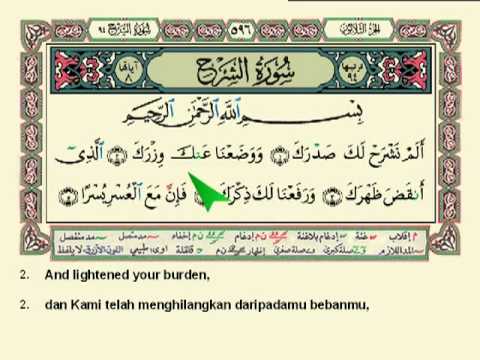 سُورَةُ الشَّرْحِ ٩٤
٥٩٦
الجُزْءُ الثَّلَاثُونَ
آياتها ٨
سُورَةُ الشَّرْحِ
ترتيبها ٩٤
بِسْمِ اللَّهِ الرَّحْمَٰنِ الرَّحِيمِ
أَلَمْ نَشْرَحْ لَكَ صَدْرَكَ ١ وَوَضَعْنَا عَنكَ وِزْرَكَ ٢ الَّذِي
أَنقَضَ ظَهْرَكَ ٣ وَرَفَعْنَا لَكَ ذِكْرَكَ ٤ فَإِنَّ مَعَ الْعُسْرِ يُسْرًا ٥
2. And lightened your burden,
2. dan Kami telah menghilangkan daripadamu bebanmu,